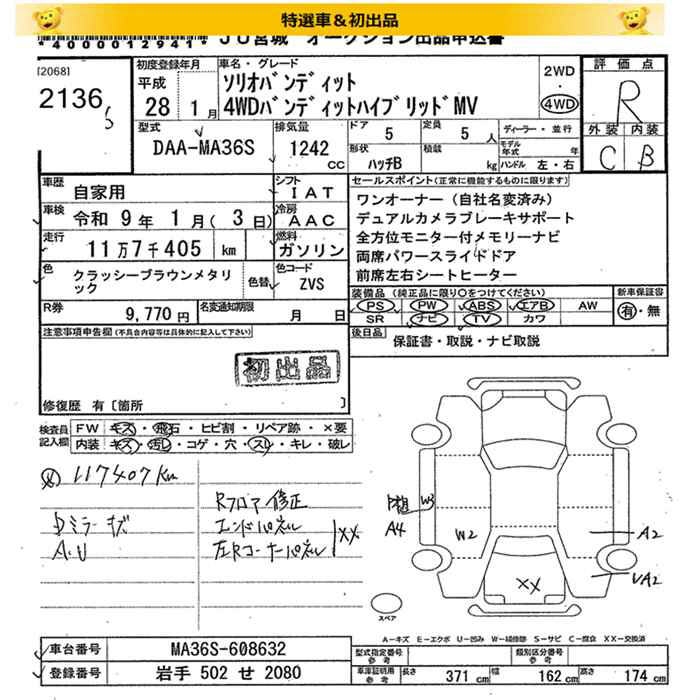 特選車＆初出品
*4000012941*
JU宮城 オークション出品申込書
[2068]
2136
初度登録年月
平成
28 1月
車名・グレード
ソリオバンディット
4WDバンディットハイブリッドMV
2WD
・
4WD
評価点
R
外装 内装
C B
型式
DAA-MA36S
排気量
1242
CC
ドア
5
定員
5 人
形状
ハッチB
積載
kg
ディーラー・並行
モデル年式 年
ハンドル 左・右
車歴
自家用
シフト
IAT
車検
令和 9年 1月( 3日)
冷房
AAC
走行
11万7千405 km
燃料
ガソリン
色
クラッシーブラウンメタリック
色替
色コード
ZVS
R券
9,770円
名変通知期限
月 日
セールスポイント(正常に機能するものに限ります)
ワンオーナー(自社名変済み)
デュアルカメラブレーキサポート
全方位モニター付メモリーナビ
両席パワースライドドア
前席左右シートヒーター
装備品(純正品に限り○をつけてください)
PS PW ABS エアB AW
SR ナビ TV カワ
新車保証書
有・無
後日品
保証書・取説・ナビ取説
注意事項申告欄(不具合内容等は具体的に記入して下さい)
初出品
修復歴 有〔箇所 〕
検査員記入欄
FW キズ・飛石・ヒビ割・リペア跡・×要
内装 キズ・汚レ・コゲ・穴・スレ・キレ・破レ
117407Km
Dミラーキズ
A.U
Rフロア修正
エンドパネル
左Rコーナーパネル
XX
W3
A4
W2
A2
UA2
XX
スペア
A－キズ E－エクボ U－凹み W－補修跡 S－サビ C－腐食 XX－交換済
車台番号
MA36S-608632
登録番号
岩手 502 せ 2080
型式指定番号
参考
類別区分番号
参考
車庫証明用
参考
長さ 371 cm
幅 162 cm
高さ 174 cm